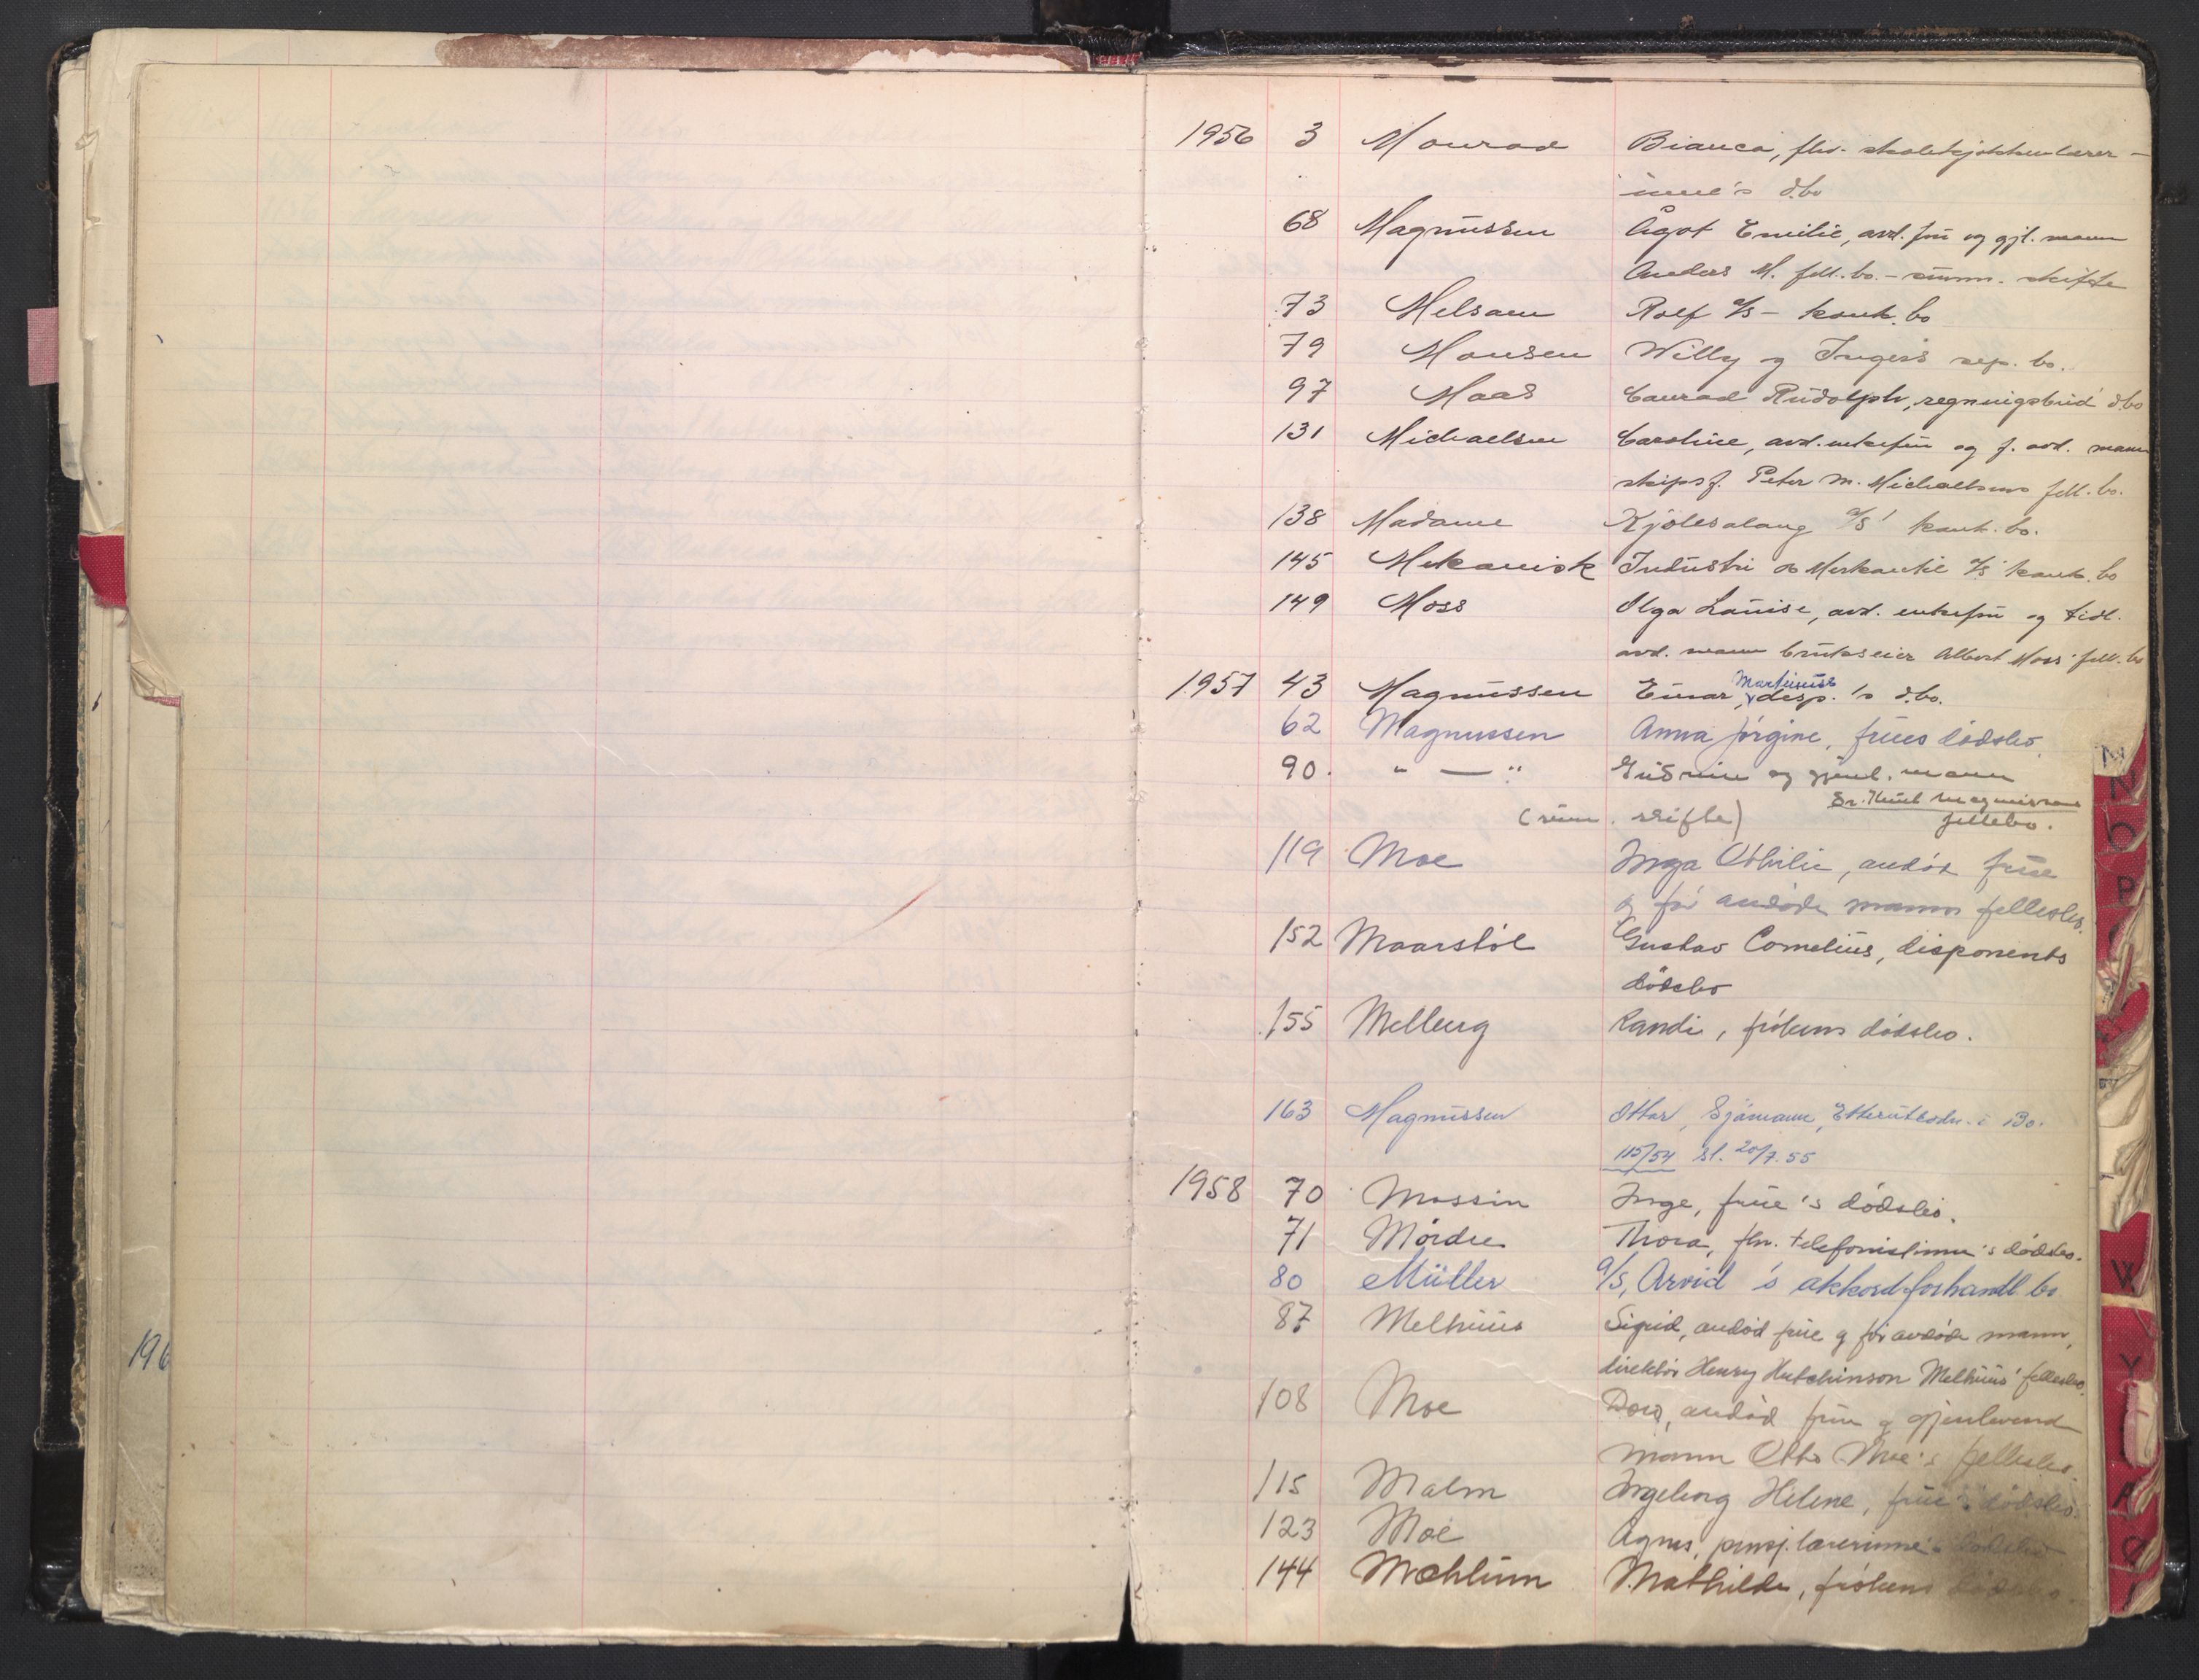 1956 3 Monrad Bianca, fhv. skolekjøkkenlærer-
inne's dbo
68 Magnussen Ågot Emilie, avd. fru og gjl. mann
Anders M. fell. bo. - summ. skifte
73 Melsom Rolf A/S - konk. bo
79 Monsen Willy og Inger's sep. bo.
97 Maas Conrad Rudolph, regningsbud dbo
131 Michaelsen Caroline, avd. enkefru og f. avd. mann
skipsf. Peter M. Michaelsens fell. bo.
138 Madame Kjolesalong A/S' konk. bo.
145 Mekanisk Industri og Merkantil A/S konk. bo
149 Moss Olga Louise, avd. enkefru og tidl.
avd. mann brukseier Albert Moss' fell. bo
1957 43 Magnussen Einar Martinius, disp.'s dbo.
62 Magnussen Anna Jörgine, frues dödsbo.
90. " — " Gudrun og gjenl. mann
Dr. Knut Magnussens
(sum. skifte) fellebo.
119 Moe Inga Othilie, avdöd frue
og før avdøde manns fellesbo.
152 Maarstöl Gustav Cornelius, disponents
dödsbo
155 Mellbug Randi, frökens dödsbo.
163 Magnussen Ottar, Sjömann, Etterutlodn. i Bo.
115/54 sl. 20/7.55
1958 70 Mossin Inge, frue's dödsbo.
71 Mördre Thora, fhv. telefonistinne's dödsbo.
80 Müller A/S, Arvid 's akkordforhandl. bo
87 Melhuus Sigrid, avdöd frue og för avdöde mann,
direktör Henry Hutchinson Melhuus' fellesbo.
108 Moe avdöd frue og gjenlevend
mann Otto Moe's fellesbo.
115 Malm Ingeborg Helene, frue's dödsbo.
123 Moe Agnes, pensj. lærerinne's dödsbo
144 Mæhlum Mathilde, frökens dödsbo.
196
N
O
P
W
Y
Æ
Ø